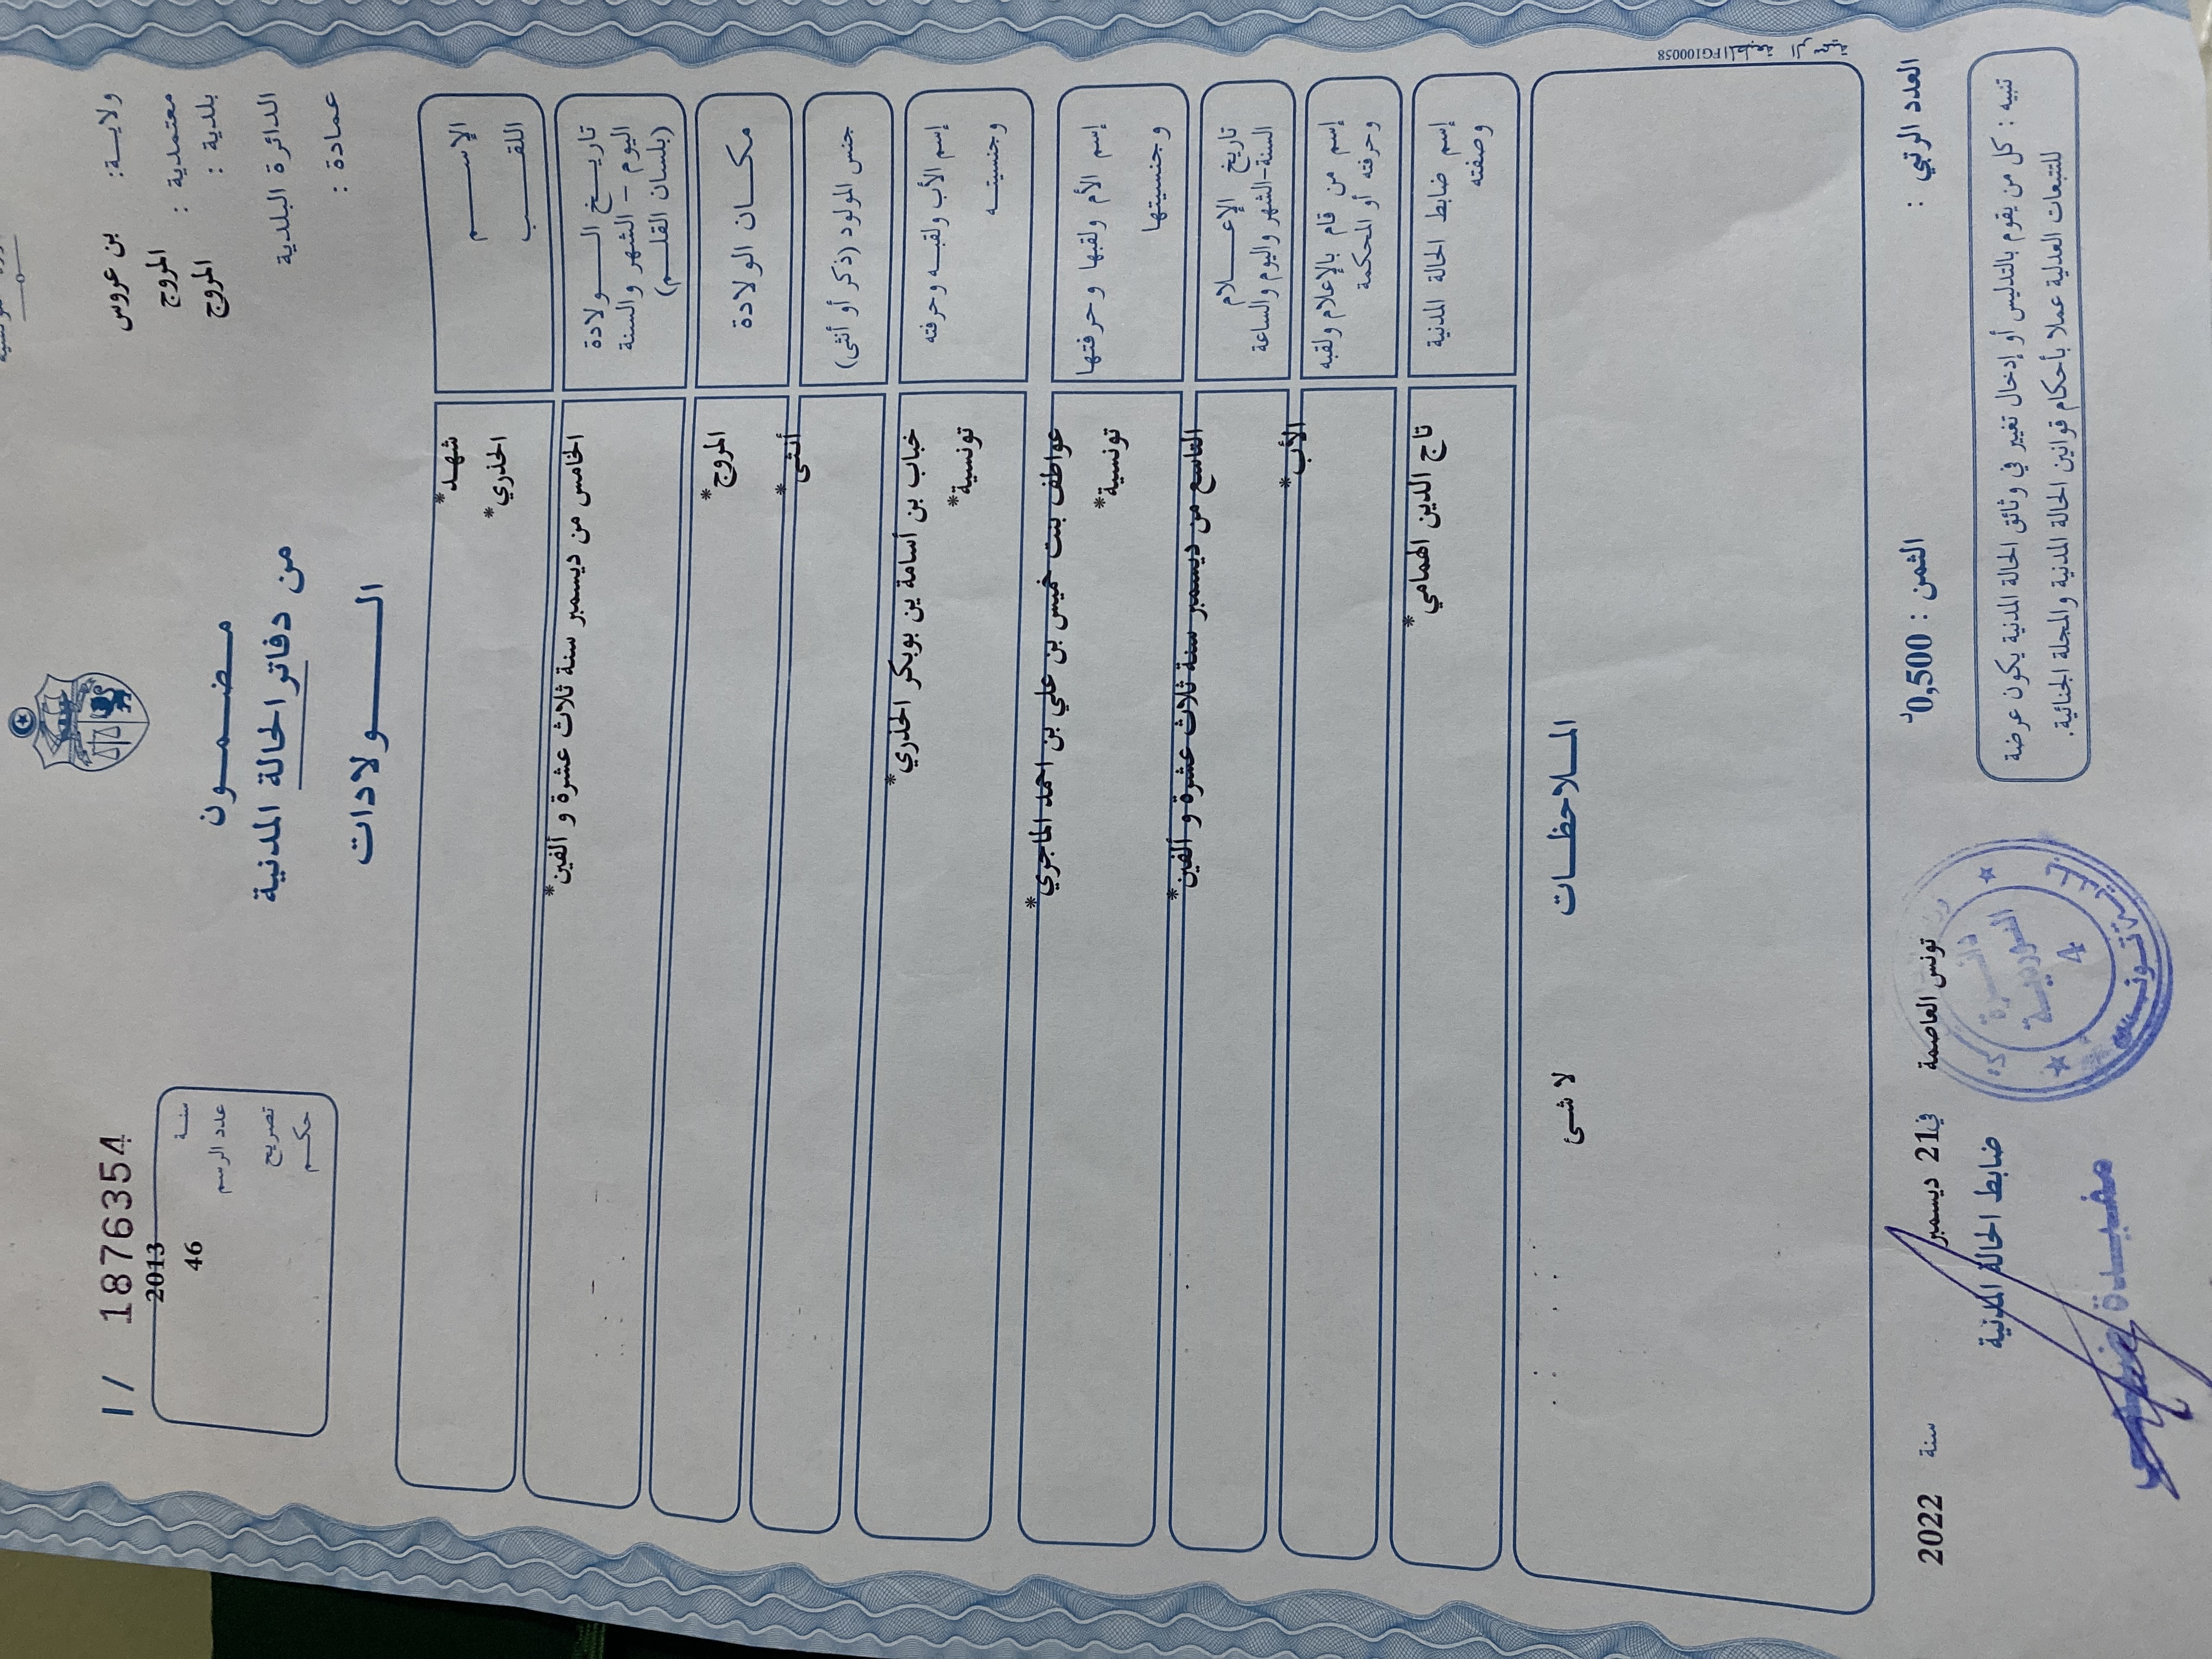 ولايـة: بن عروس
معتمدية : المروج
بلدية : المروج
الدائرة البلدية
عمادة :
مـضـمـون
من دفاتر الحالة المدنية
الـــولادات
1 / 1876354
سنـة 2013
عدد الرسم 46
تصريح
حكـم
الإســـم شهـد*
اللقـــب الحذري*
تاريــخ الـــولادة الخامس من ديسمبر سنة ثلاث عشرة و ألفين*
اليوم - الشهر والسنة
(بلسان القلـم)
مكـــان الولادة المروج*
جنس المولود (ذكر أو أنثى) أنثى*
إسم الأب ولقبـه وحرفته خباب بن أسامة بن بوبكر الحذري*
وجنسيتـه تونسية*
إسم الأم ولقبها وحرفتها عواطف بنت خميس بن علي بن احمد الماجري*
وجنسيتها تونسية*
تاريخ الإعـــلام التاسع من ديسمبر سنة ثلاث عشرة و ألفين*
السنة-الشهر واليوم والساعة
إسم من قام بالإعلام ولقبه الأب*
وحرفته أو المحكمة
إسم ضابط الحالة المدنية تاج الدين الهمامي*
وصفته
المـلاحظـات
لا شئ
FG100058
العدد الرتبي :
الثمن : 0,500د
تونس العاصمة في 21 ديسمبر سنة 2022
ضابط الحالة المدنية
تنبيه : كل من يقوم بالتدليس أو إدخال تغيير في وثائق الحالة المدنية يكون عرضة
للتتبعات العدلية عملا بأحكام قوانين الحالة المدنية والمجلة الجنائية.
دائـرة
4
تـونـس
مفيـدة